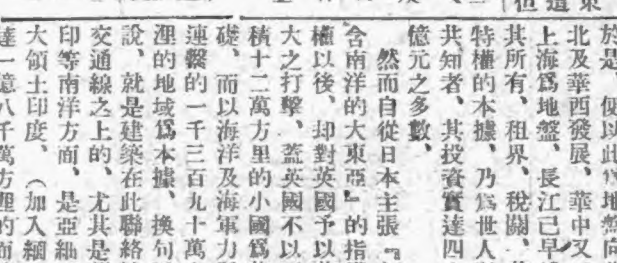 於是、便以此爲地盤向
北及華西發展、華中又
上海爲地盤、長江已早
其所有、租界、稅關、
特權的本據、乃爲世人
共知者、其投資實達四
億元之多數、
然而自從日本主張『
含南洋的大東亞』的指
權以後、却對英國予以
大之打擊、蓋英國不以
積十二萬方里的小國爲
礎、而以海洋及海軍力
連繫的一千三百九十萬
浬的地域爲本據、換句
說、就是建築在此聯絡
交通線之上的、尤其是
印等南洋方面、是亞細
大領土印度、(加入緬
達一億八千萬方浬的面